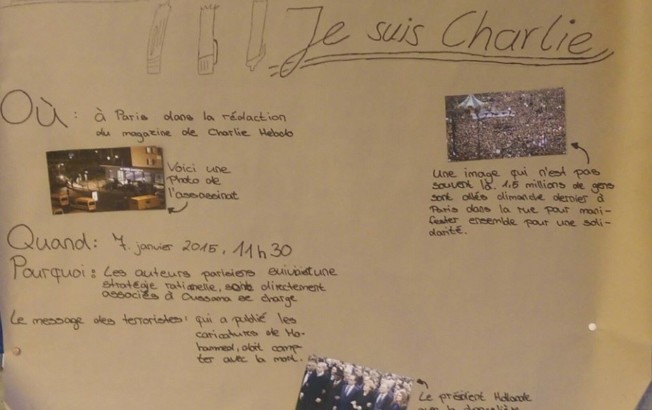 Je suis Charlie
Où: à Paris dans la rédaction
du magazine de Charlie Hebdo
Voici une
Photo de
l'assassinat
Une image qui n'est pas
souvent là. 1,5 millions de gens
sont allés dimanche dernier à
Paris dans la rue pour mani-
fester ensemble pour une soli-
darité.
Quand: 7. janvier 2015, 11h30
Pourquoi: Les auteurs parisiens suivaient une
stratégie rationnelle, sont directement
associés à Oussama se charge
Le message des terroristes: qui a publié les
caricatures de Mo-
hammed, doit comp-
ter avec la mort.
Le président Hollande